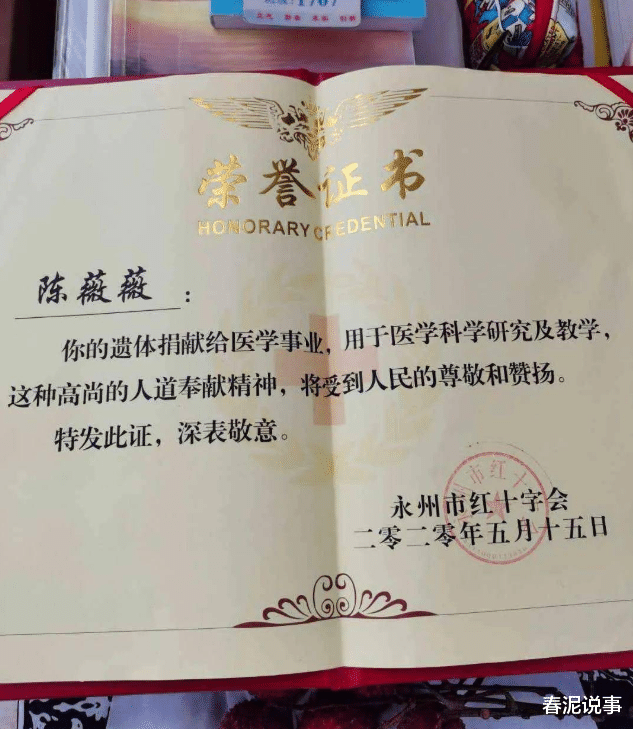 1707
荣誉证书
HONORARY CREDENTIAL
陈薇薇：
你的遗体捐献给医学事业，用于医学科学研究及教学，
这种高尚的人道奉献精神，将受到人民的尊敬和赞扬。
特发此证，深表敬意。
永州市红十字会
二零二零年五月十五日
春泥说事